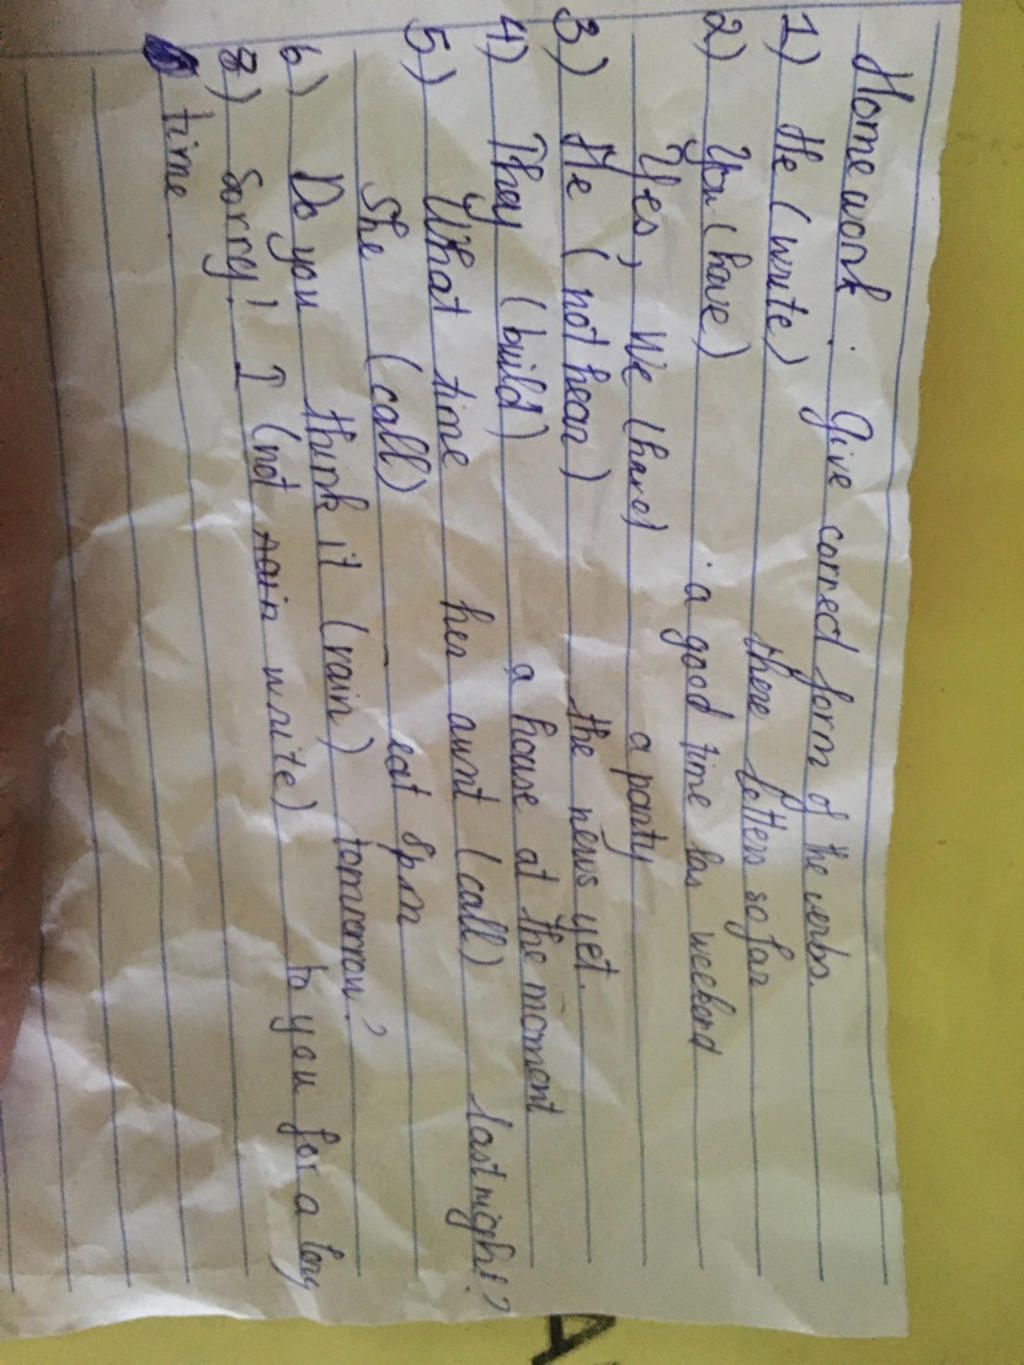 Homework: Give correct form of the verbs.
1) He (write) there letters so far
2) You (have) a good time las weekend
Yes, We (have) a party
3) He (not hear) the news yet.
4) They (build) a house at the moment
5) What time her aunt (call) last night?
She (call) eat 8pm
6) Do you think it (rain) tomorrow?
8) Sorry! I (not rain write) to you for a long
time.
A